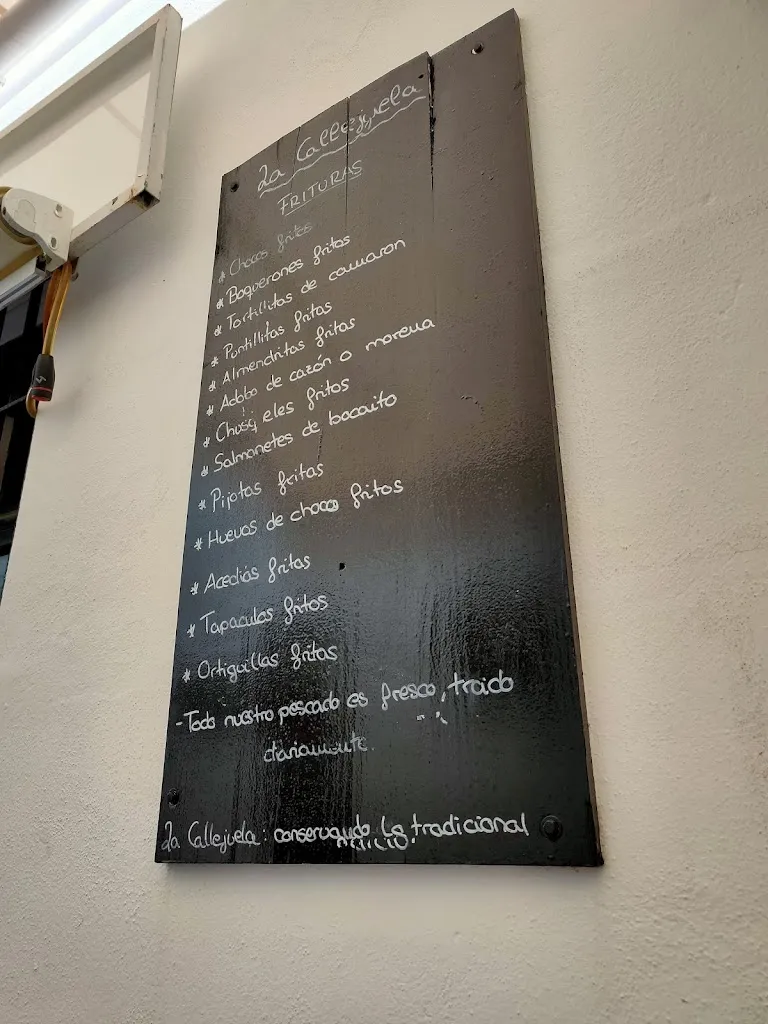 La Callejuela
FRITURAS
* Chocos fritos
* Boquerones fritos
* Tortillitas de camaron
* Puntillitas fritas
* Almendritas fritas
* Adobo de cazón o morena
* eles fritos
* Salmonetes de bocaito
* Pijotas fritas
* Huevos de choco fritos
* Acedías fritas
* Tapaculos fritos
* Ortiguillas fritas
-Todo nuestro pescado es fresco, traido
diariamente.
La Callejuela: conservando lo tradicional